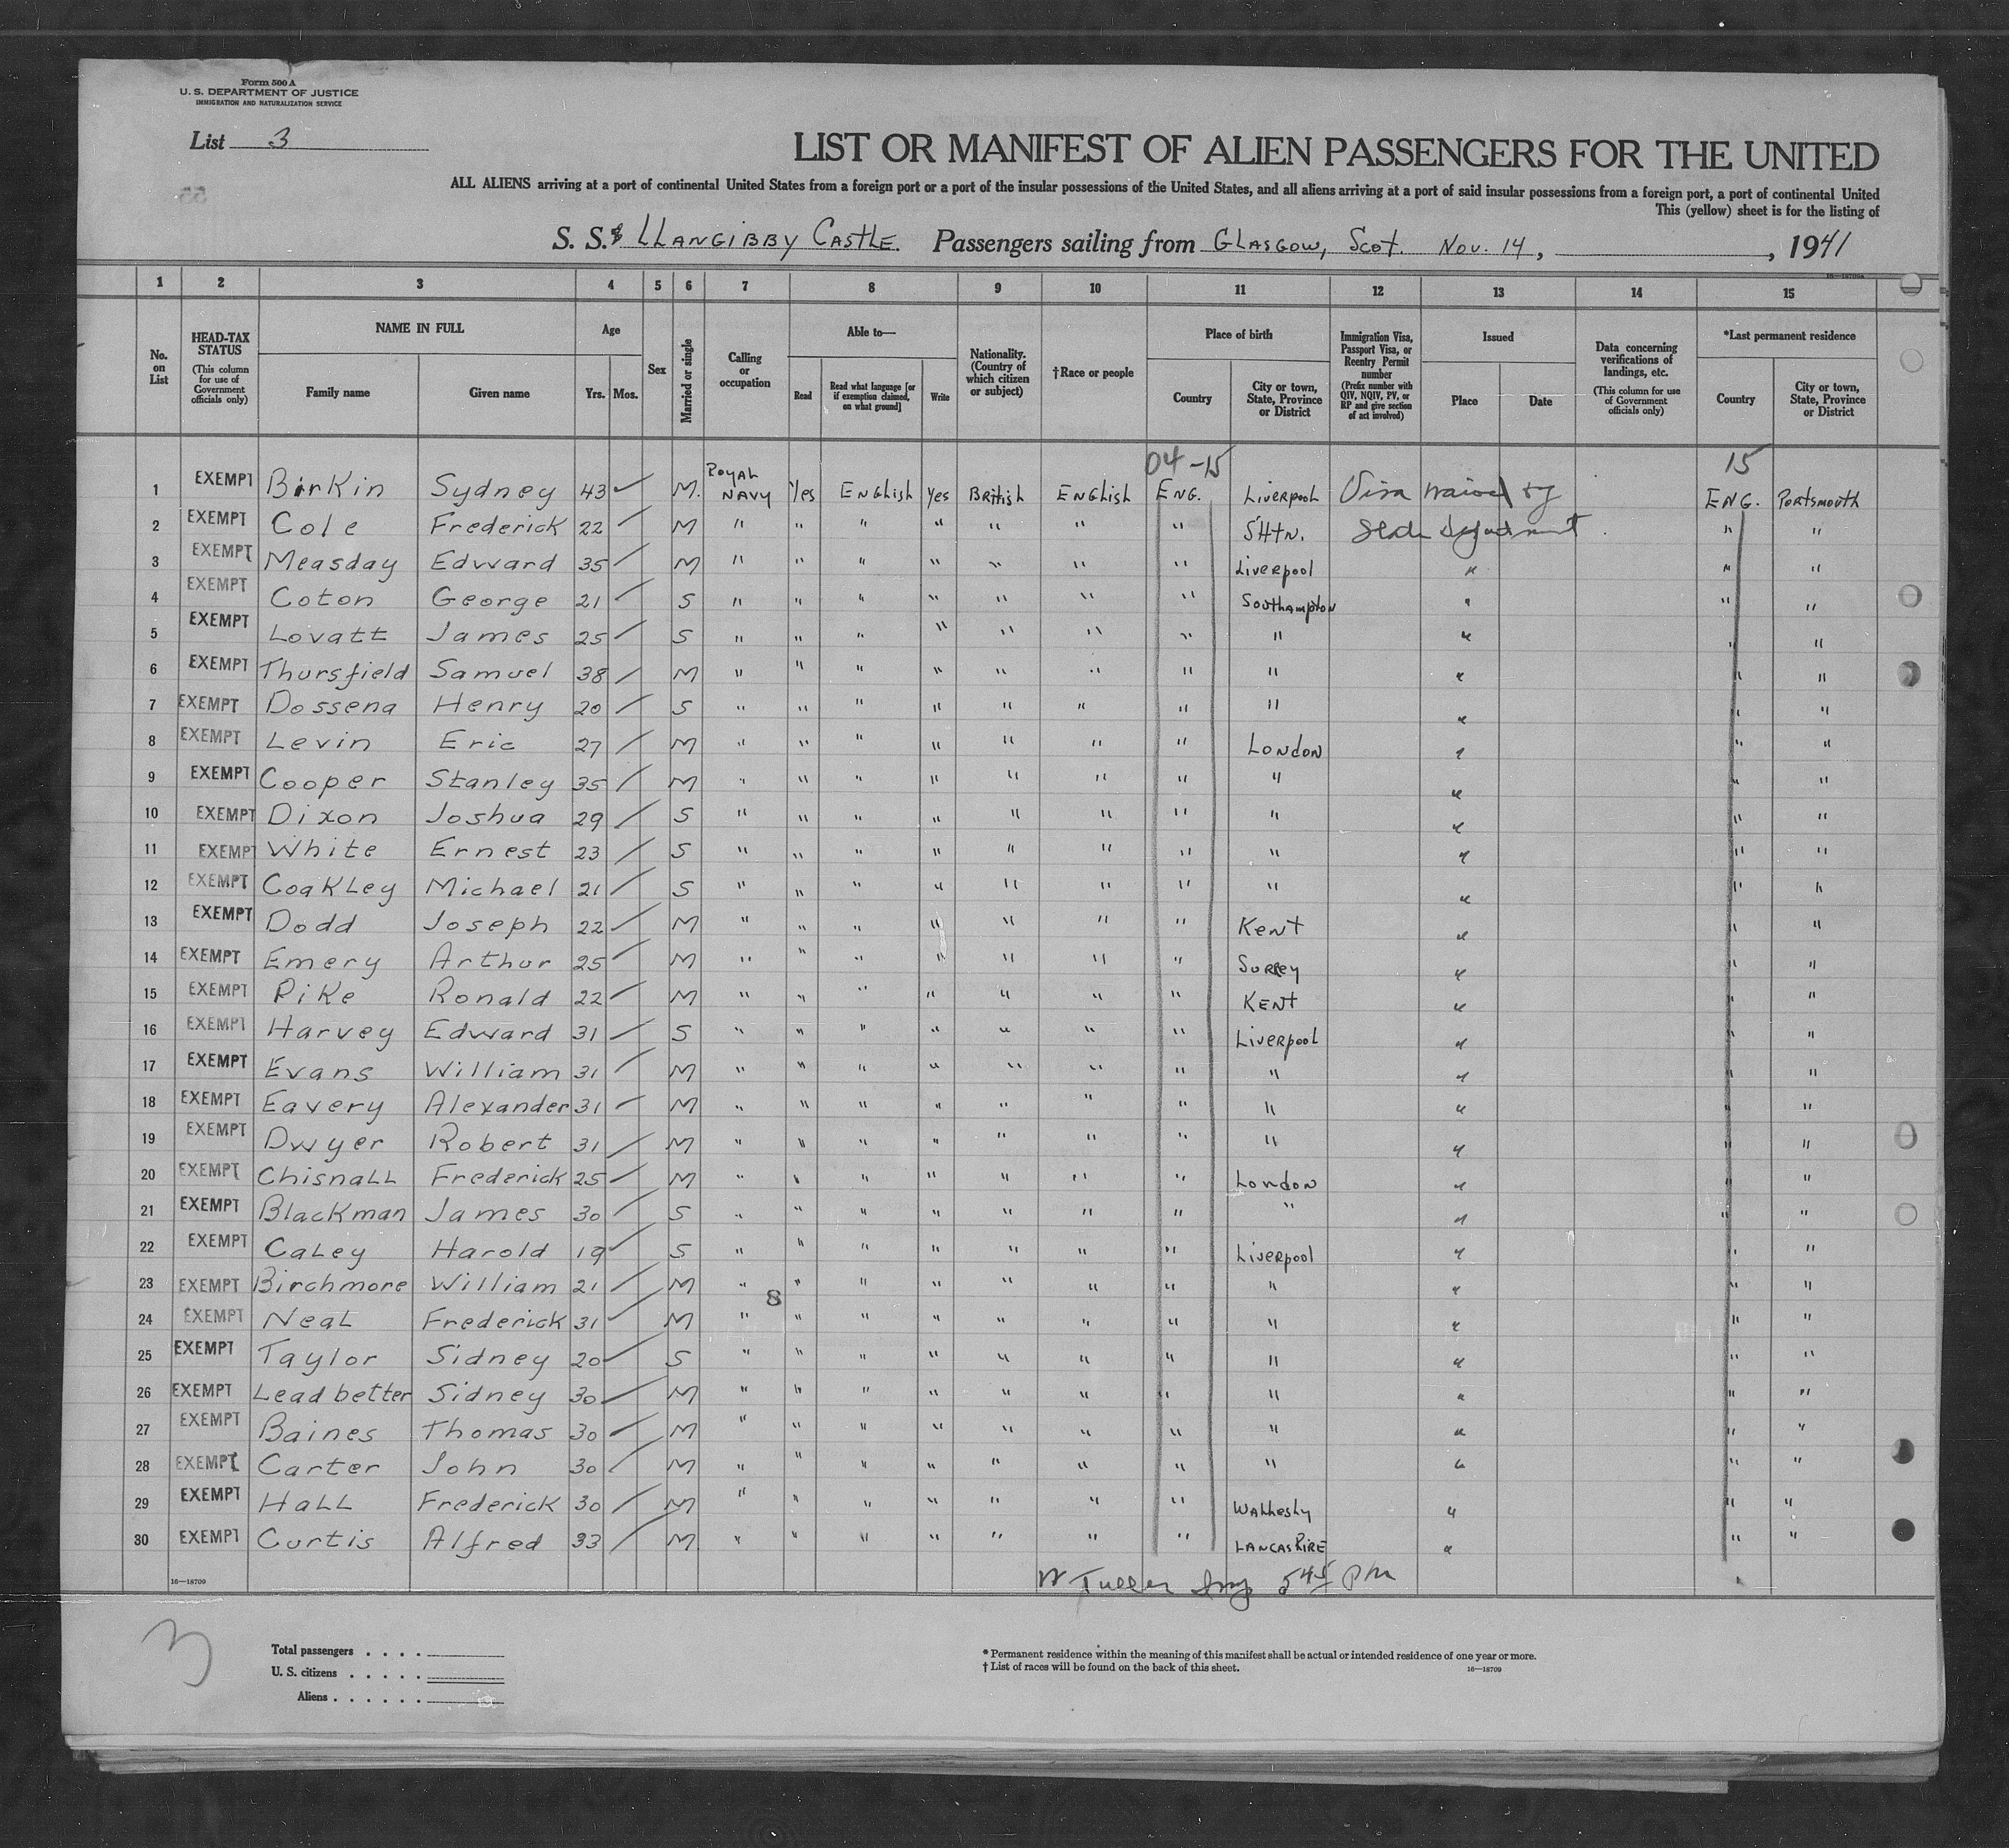 Form 500 A
U. S. DEPARTMENT OF JUSTICE
IMMIGRATION AND NATURALIZATION SERVICE
List 3
LIST OR MANIFEST OF ALIEN PASSENGERS FOR THE UNITED
ALL ALIENS arriving at a port of continental United States from a foreign port or a port of the insular possessions of the United States, and all aliens arriving at a port of said insular possessions from a foreign port, a port of continental United
This (yellow) sheet is for the listing of
S. S. LLANGIBBY CASTLE. Passengers sailing from GLASGOW, SCOT. NOV. 14, , 1941
16—18709a
1 2 3 4 5 6 7 8 9 10 11 12 13 14 15
No. on List
HEAD-TAX STATUS (This column for use of Government officials only)
NAME IN FULL Family name Given name
Age Yrs. Mos.
Sex
Married or single
Calling or occupation
Able to— Read Read what language [or if exemption claimed, on what ground] Write
Nationality. (Country of which citizen or subject)
†Race or people
Place of birth Country City or town, State, Province or District
Immigration Visa, Passport Visa, or Reentry Permit number (Prefix number with QIV, NQIV, PV, or RP and give section of act involved)
Issued Place Date
Data concerning verifications of landings, etc. (This column for use of Government officials only)
*Last permanent residence Country City or town, State, Province or District
04-15 15
1 EXEMPT Birkin Sydney 43 M. ROYAL NAVY Yes ENGLISH Yes BRITISH ENGLISH ENG. LIVERPOOL Visa waived by ENG. PORTSMOUTH
2 EXEMPT Cole Frederick 22 M " " " " " " " S'HTN. State Department " "
3 EXEMPT Measday Edward 35 M " " " " " " " LIVERPOOL " " "
4 EXEMPT Coton George 21 S " " " " " " " SOUTHAMPTON " " "
5 EXEMPT Lovatt James 25 S " " " " " " " " " " "
6 EXEMPT Thursfield Samuel 38 M " " " " " " " " " " "
7 EXEMPT Dossena Henry 20 S " " " " " " " " " " "
8 EXEMPT Levin Eric 27 M " " " " " " " LONDON " " "
9 EXEMPT Cooper Stanley 35 M " " " " " " " " " " "
10 EXEMPT Dixon Joshua 29 S " " " " " " " " " " "
11 EXEMPT White Ernest 23 S " " " " " " " " " " "
12 EXEMPT Coakley Michael 21 S " " " " " " " " " " "
13 EXEMPT Dodd Joseph 22 M " " " " " " " KENT " " "
14 EXEMPT Emery Arthur 25 M " " " " " " " SURREY " " "
15 EXEMPT Pike Ronald 22 M " " " " " " " KENT " " "
16 EXEMPT Harvey Edward 31 S " " " " " " " LIVERPOOL " " "
17 EXEMPT Evans William 31 M " " " " " " " " " " "
18 EXEMPT Eavery Alexander 31 M " " " " " " " " " " "
19 EXEMPT Dwyer Robert 31 M " " " " " " " " " " "
20 EXEMPT Chisnall Frederick 25 M " " " " " " " London " " "
21 EXEMPT Blackman James 30 S " " " " " " " " " " "
22 EXEMPT Caley Harold 19 S " " " " " " " LIVERPOOL " " "
23 EXEMPT Birchmore William 21 M " " " " " " " " " " "
8
24 EXEMPT Neal Frederick 31 M " " " " " " " " " " "
25 EXEMPT Taylor Sidney 20 S " " " " " " " " " " "
26 EXEMPT Leadbetter Sidney 30 M " " " " " " " " " " "
27 EXEMPT Baines Thomas 30 M " " " " " " " " " " "
28 EXEMPT Carter John 30 M " " " " " " " " " " "
29 EXEMPT Hall Frederick 30 M " " " " " " " " "  "
30 EXEMPT Curtis Alfred 33 M " " " " " " " LANCASHIRE " " "
545 PM
16—18709
3
Total passengers
U. S. citizens
Aliens
* Permanent residence within the meaning of this manifest shall be actual or intended residence of one year or more.
† List of races will be found on the back of this sheet. 16—18709